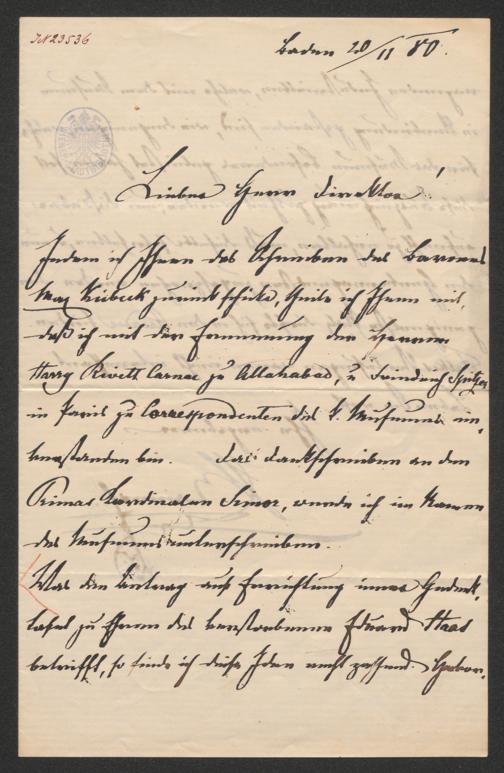 IN 23536
Baden 20/11 80.
Lieber Herr Direktor!
Indem ich Ihnen das Schreiben des Barones
Max Kübeck zurückschicke, theile ich Ihnen mit,
daß ich mit der Ernennung der Herren
Harry Rivett Carnac zu Allahabad, u Friedrich Spitzer
in Paris zu Correspondenten des k. Museums ein-
verstanden bin. Das Dankschreiben an den
Primas Kardinalen Simor, werde ich im Namen
des Museums unterschreiben.
Was den Antrag auf Errichtung einer Gedenk-
tafel zu Ehren des verstorbenen Eduard Haas
betrifft, so finde ich diese Idee recht passend.